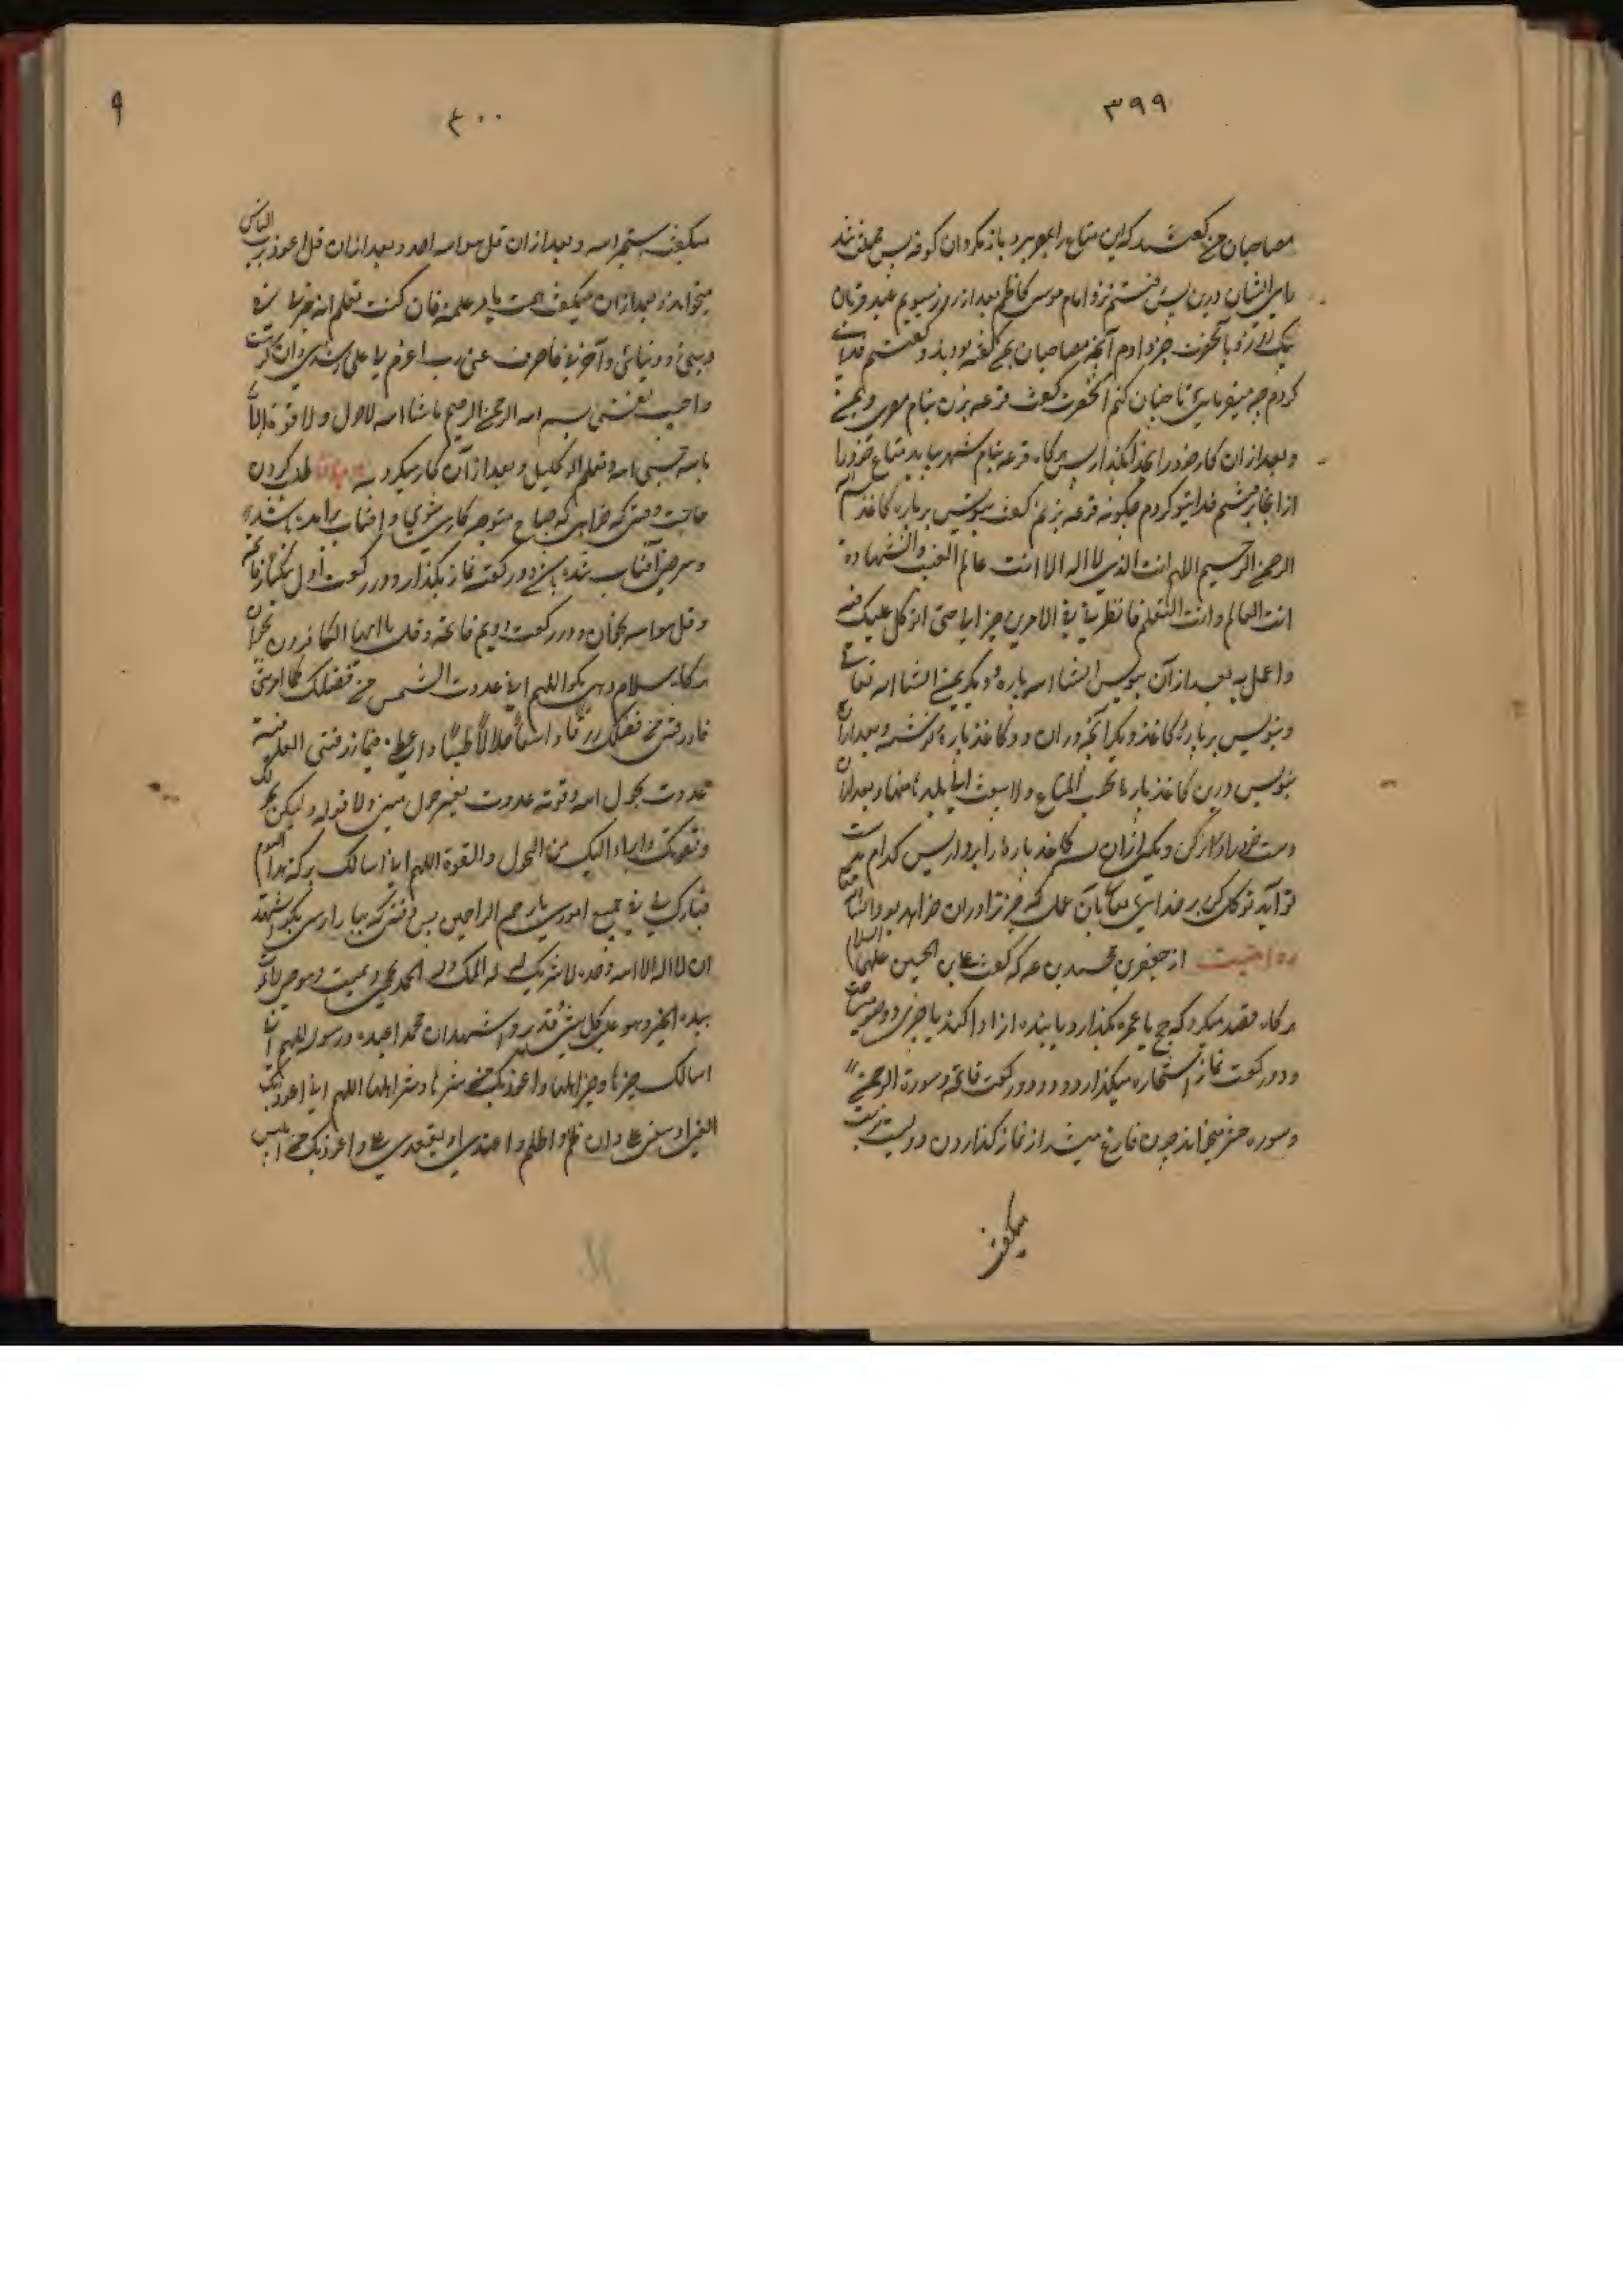 ٣٩٩
مصاحبان من گفتند که این متاع را بمصر برد باز مکردان کوفه پس مختلف شد
رای ایشان درین پس رفتم نزد امام موسی کاظم بعد از روز سیوم عید قربان
بیک روز و بآنحضرت خبر دادم آنچه مصاحبان من گفته بودند و گفتم فدایت
کردم چه میفرمایی تا چنان کنم آنحضرت گفت قرعه بزن بنام مصر و یمن
و بعد ازان کار خود را بخدا بگذار پس هرگاه قرعه بنام شهر بیاید متاع خود را
ازانجا بفرست گفتم فدایتو کردم چگونه قرعه بزنم گفت بنویس بر پاره کاغذ بسم الله
الرحمن الرحیم اللهم انت الذی لا اله الا انت عالم الغیب والشهادة
انت العالم وانا المتعلم فانظر لی فی الامرین خیرا لی حتی اتوکل علیک فیه
واعمل به بعد از آن بنویس انشا الله پاره و دیگر یمن انشا الله تعالی
و بنویس بر پارهٔ کاغذ دیگر آنچه دران دو کاغذ پاره نوشته و بعد ازان
بنویس درین کاغذ پاره یحبس المتاع ولا یبعث الی بلد منهما و بعد ازان
دست خود را دراز کن و یکی ازان سه کاغذ پاره را بردار پس کدام بدست
تو آید توکل کن بر خدای تعالی بآن عمل که خیر تو دران خواهد بود انشا الله
روایت از جعفر بن محمد بن علی که گفت علی بن الحسین علیهما السلام
هرگاه قصد میکرد که حج یا عمره بگذارد یا بنده ازاد کند یا چیزی وضو میساخت
و دو رکعت نماز استخاره میگذارد و در دو رکعت فاتحه و سورة الرحمن
و سوره حشر میخواند چون فارغ میشد از نماز گذاردن دویست مرتبه
میگفت
٤٠٠
میگفت استخیر الله و بعد ازان قل هو الله احد و بعد ازان قل اعوذ برب الناس
میخواند و بعد ازان میگفت
دینی و دنیائی و آخرتی فاصرفه عنی رب اعزم لی علی رشدی وان کرهت
واحبت نفسی بسم الله الرحمن الرحیم ماشا الله لا حول ولا قوة الا
بالله حسبی الله ونعم الوکیل و بعد ازان کار میکرد طلب کردن
حاجت وقتی که خواهی که صباح متوجه کاری شوی و افتاب برامده باشد
و سرخی آفتاب شده باشد دو رکعت نماز بگذار و در رکعت اول یکبار فاتحه
و قل هو الله بخوان و در رکعت دویم فاتحه و قل یا ایها الکافرون بخوان
هرگاه سلام دهی بگو اللهم انی غدوت التمس من فضلک کما امرتنی
فارزقنی من فضلک رزقا واسعا حلالا طیبا واعطنی فیما رزقتنی العافیة
غدوت بحول الله وقوته غدوت بغیر حول منی ولا قوة ولکن بحولک
وقوتک وابراء الیک من الحول والقوة اللهم انی اسالک برکة هذا الیوم
فبارک لی فی جمیع اموری یا ارحم الراحمین پس وقتی که بیاری بگو اشهد
ان لا اله الا الله وحده لا شریک له له الملک وله الحمد یحیی ویمیت وهو حی لا یموت
بیده الخیر وهو علی کل شی قدیر واشهد ان محمدا عبده ورسوله اللهم انی
اسالک خیرها وخیر اهلها واعوذ بک من شرها وشر اهلها اللهم انی اعوذ بک
ابغی او یبغی علی وان اظلم او اظلم واعتدی او یعتدی علی واعوذ بک من ابلیس